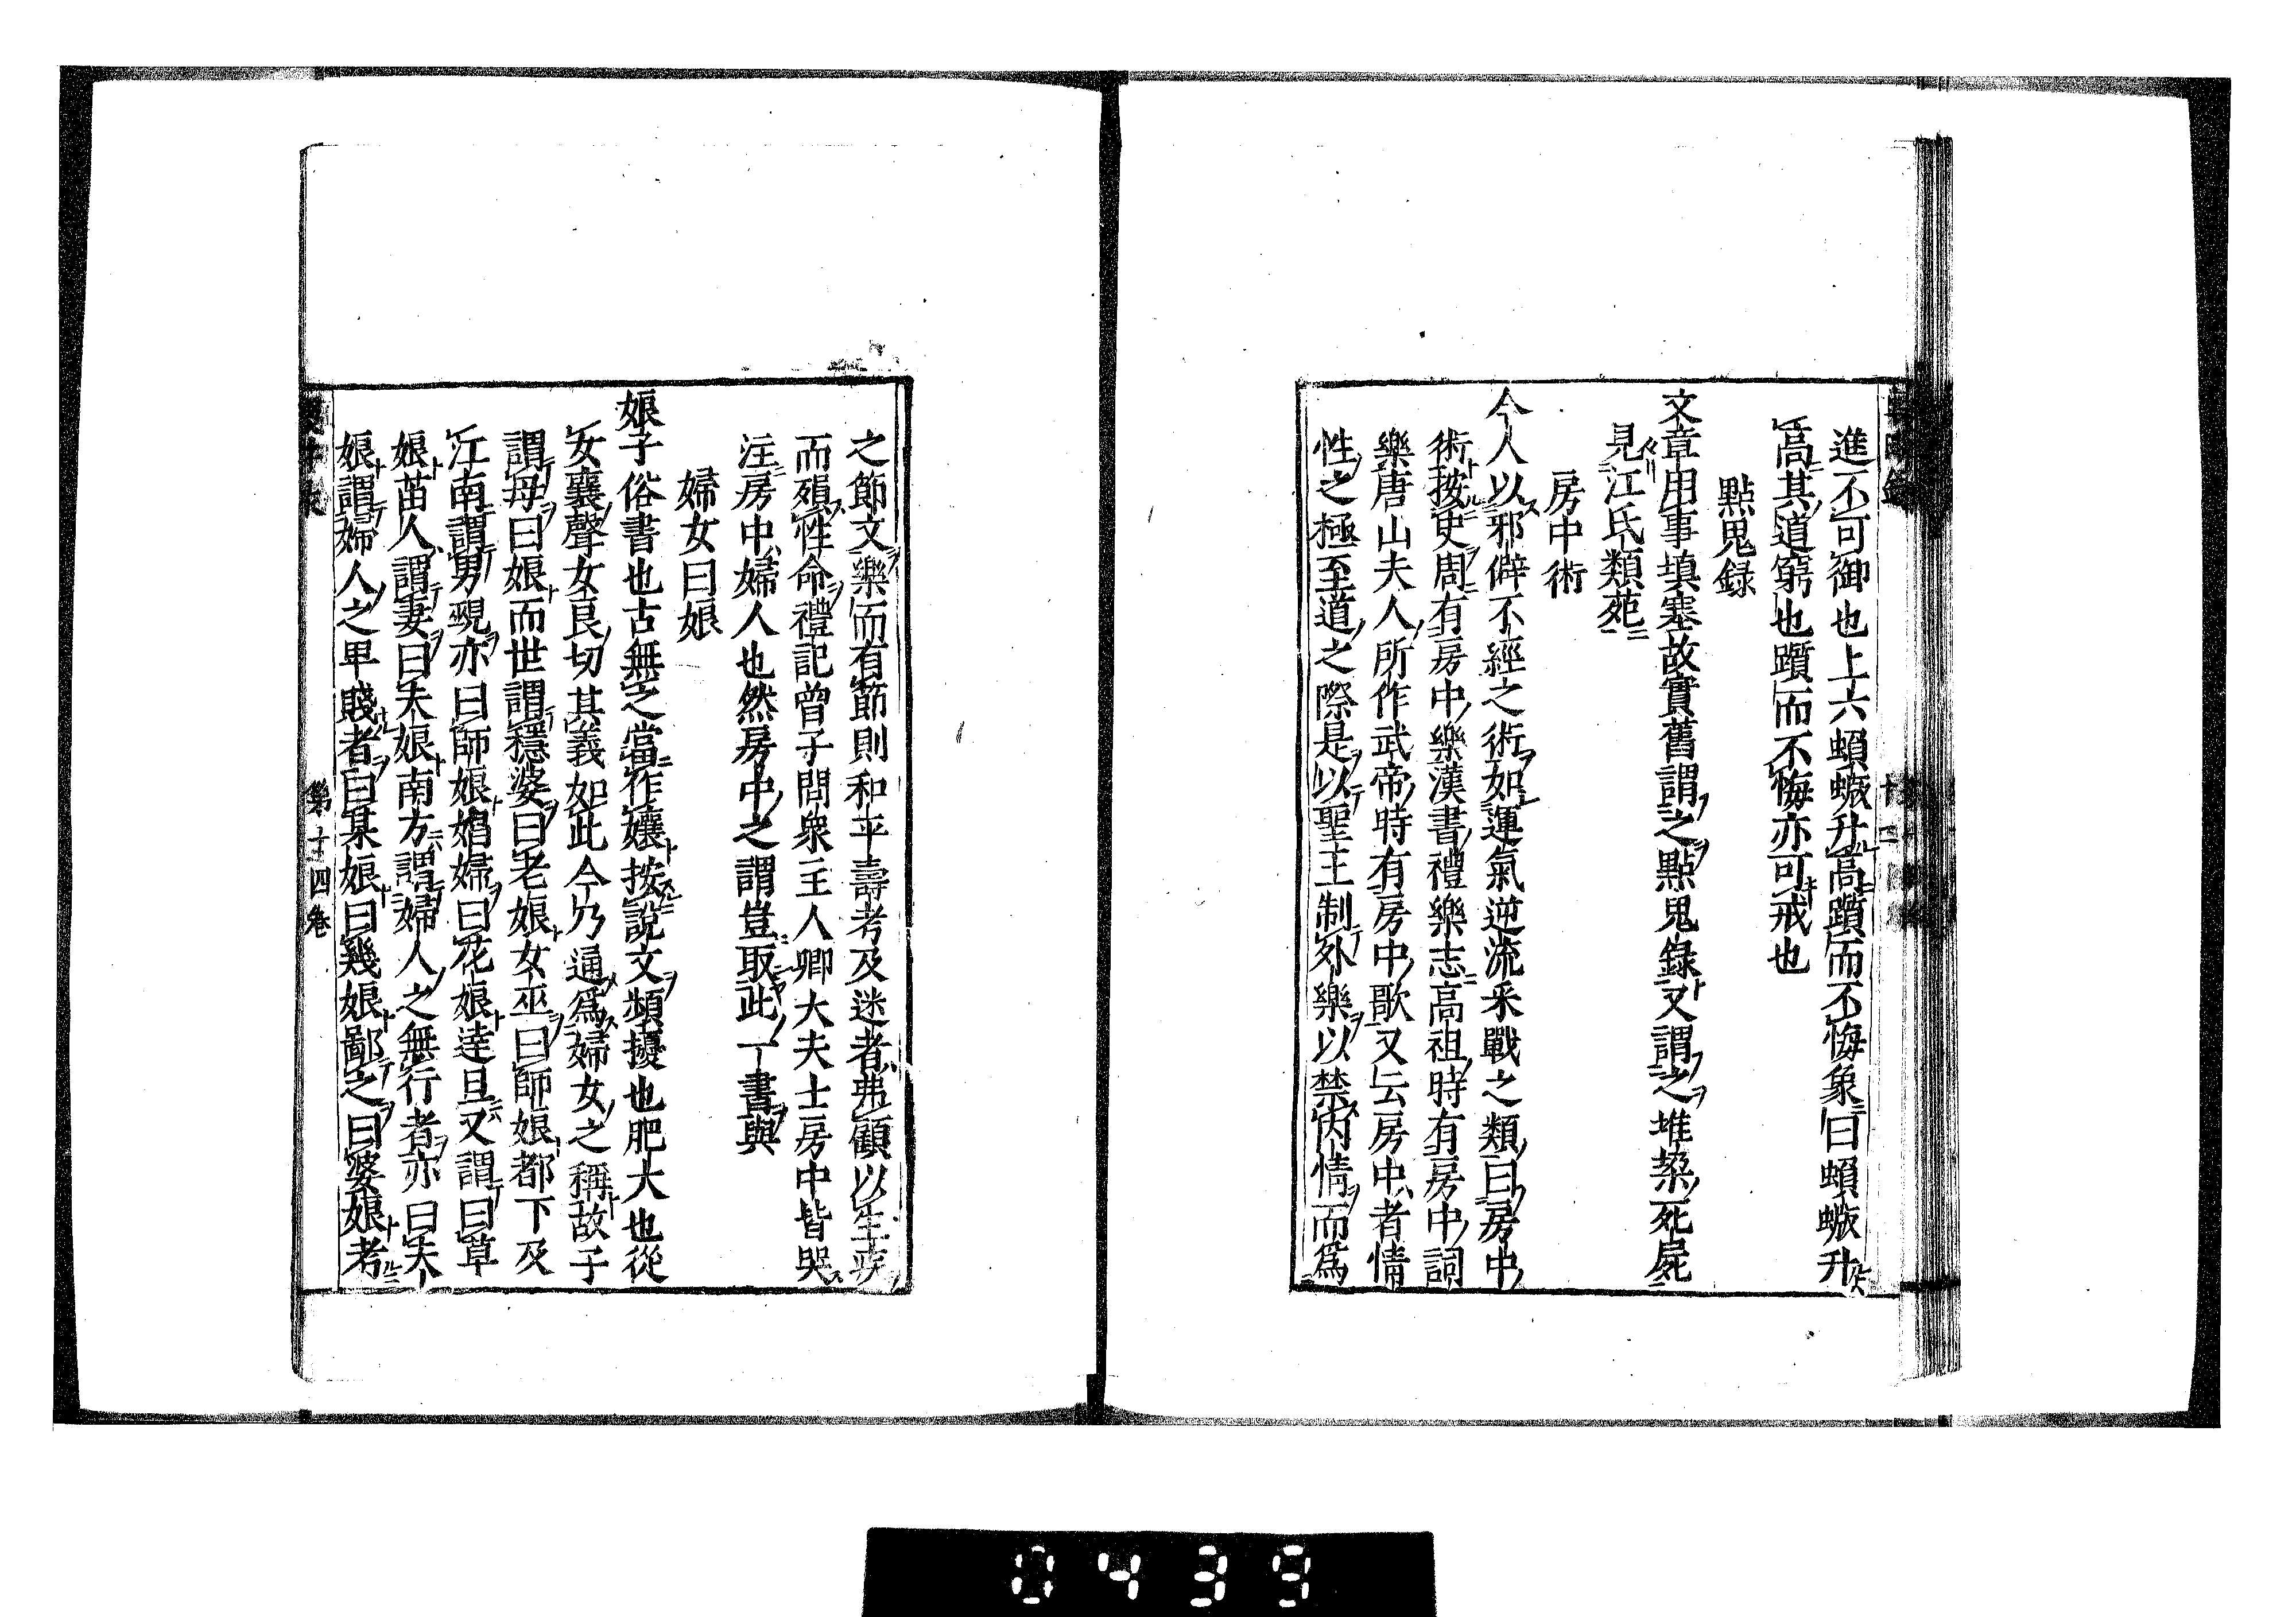 進不可御也上六蝢蟣升高躓而不悔象曰蝢蟣升
高其道窮也躓而不悔亦可戒也
點鬼録
文章用事填塞故實舊謂之點鬼錄又謂之堆垜死屍
見江氏類苑
房中術
今人以邪僻不經之術如運氣逆流采戰之類曰房中
術按史周有房中樂漢書禮樂志高祖時有房中詞
樂唐山夫人所作武帝時有房中歌又云房中者情
性之極至道之際是以聖王制外樂以禁內情而爲
之節文樂而有節則和平壽考及迷者弗顧以生疾
而殞性命禮記曾子問衆主人卿大夫士房中皆哭
注房中婦人也然房中之謂豈取此丁書與
婦女曰娘
娘子俗書也古無之當作孃按說文煩擾也肥大也從
女襄聲女良切其義如此今乃通爲婦女之稱故子
謂母曰娘而世謂穩婆曰老娘女巫曰師娘都下及
江南謂男覡亦曰師娘娼婦曰花娘達旦又謂曰草
娘苗人謂妻曰夫娘南方謂婦人之無行者亦曰夫
娘謂婦人之卑賤者曰某娘曰幾娘鄙之曰婆娘考
第十四卷
0439